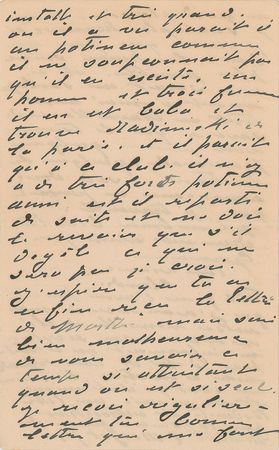 install et très grand.
où il a vu paraît il
un patineur comme
il ne soupçonnait pas
qu'il en existe, un
homme et trois femmes
il en est baba et
trouve
la paris. et il paraît
qu'à ce club il n'y
a de très forts patineurs
aussi est il reparti
de suite et ne dois
le revoir que s'il
dégèle ce qui ne
sera pas je crois.
j'espère que tu as
enfin reçu la lettre
de mais suis
bien malheureuse
de vous savoir ce
temps si attristant
quand on est si seul.
je reçois régulière-
ment ta bonne
lettre qui me font